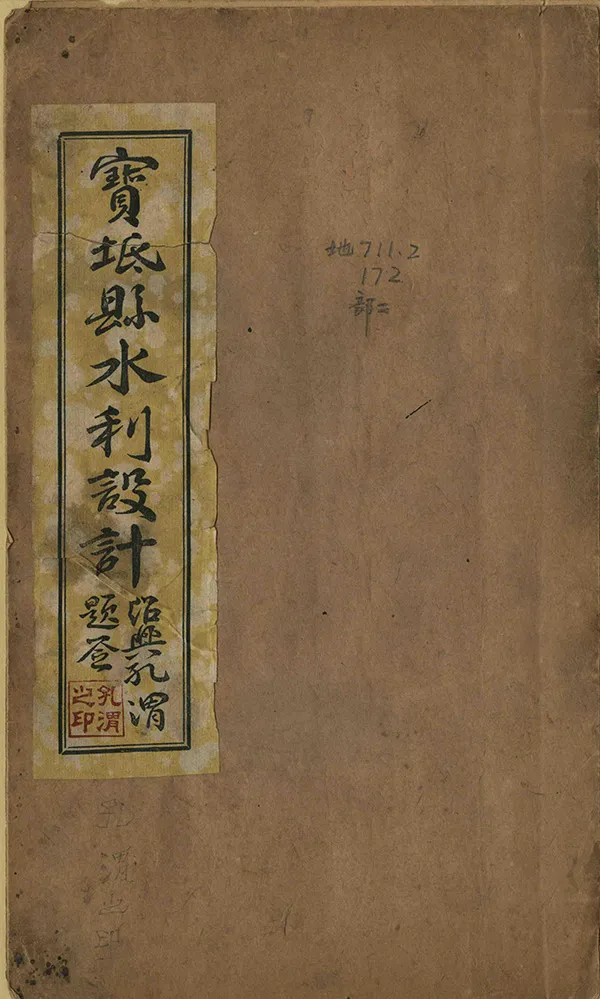 寶坻縣水利設計
紹興孔渭
題签
孔渭
之印
地711.2
172
部二
孔渭之印